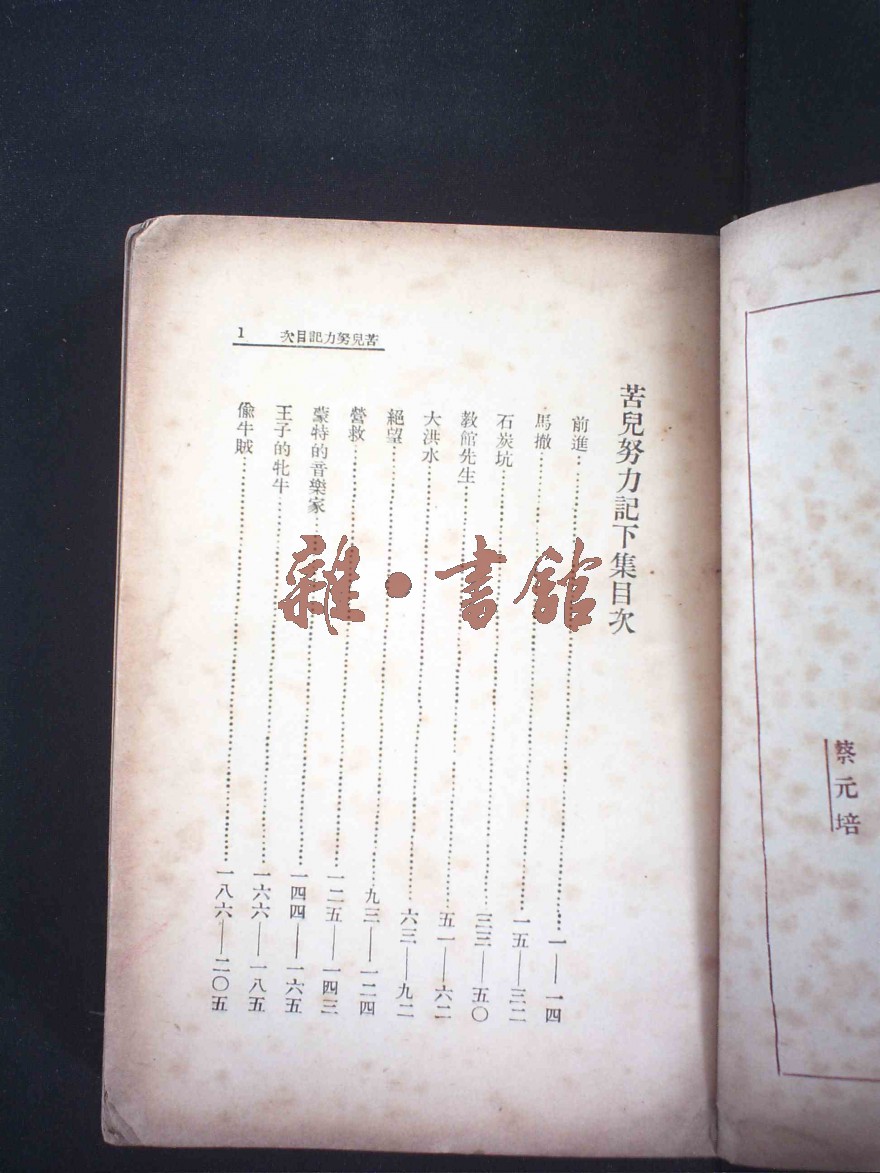 蔡元培
苦兒努力記下集目次
前進……一——一四
馬撤……一五——三二
石炭坑……三三——五〇
教館先生……五一——六二
大洪水……六三——九二
絕望……九三——一二四
營救……一二五——一四三
蒙特的音樂家……一四四——一六五
王子的牝牛……一六六——一八五
偸牛賊……一八六——二〇五
苦兒努力記目次 1
雜·書館